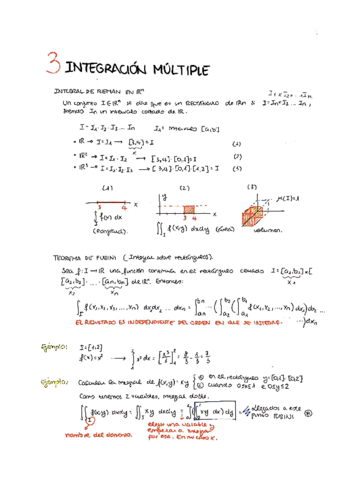 3 INTEGRACIÓN MÚLTIPLE
INTEGRAL DE RIEMAN EN ℝⁿ
I₁ x I₂ ... In
Un conjunto I∈ℝⁿ se dice que es un RECTÁNGULO de ℝn si I=I₁·I₂... In,
siendo In un intervalo cerrado de ℝ.
I = I₁·I₂·I₃ ... In   I₁ = Intervalo [a,b]
• ℝ → I = I₁ → [3,4] = I (1)
x
• ℝ² → I = I₁·I₂ → [3,4]·[0,1] = I (2)
• ℝ³ → I = I₁·I₂·I₃ → [3,4]·[0,1]·[1,2] = I (3)
(1) (2) (3)
3 4 x
y
3 4 x
μ(I) = 1
∫ f(x) dx
(longitud).
∬ f(x,y) dxdy (área)
volumen.
TEOREMA DE FUBINI (Integral sobre rectángulos).
Sea f: I → ℝ una función continua en el rectángulo cerrado I = [a₁,b₁]×
[a₂,b₂]· ... ·[an,bn] de ℝⁿ. Entonces:
x₁
x₂ xn
∫ f(x₁,x₂,x₃,...,xn) dx₁dx₂ ... dxn = ∫ ... (∫ (∫ f(x₁,x₂,...,xn) dx₁) dx₂) ... dxn
EL RESULTADO ES INDEPENDIENTE DEL ORDEN EN QUE SE INTEGRE.
Ejemplo: I = [1,2]
f(x) = x² → ∫ x² dx = [x³/3] = 8/3 - 1/3 = 7/3
Ejemplo: Calcular la integral de f(x,y) = xy ① en el rectángulo y=[0,1]·[0,2]
② cuando 0≤x≤1 e 0≤y≤2
Como tenemos 2 variables, integral doble.
∬ f(x,y) dxdy = ∬ xy dxdy = ∫ (∫ xy dx) dy
llegados a este
punto FUBINI
nombre del dominio.
elijo una variable y
empiezo a integrar
por esa. En mi caso x.